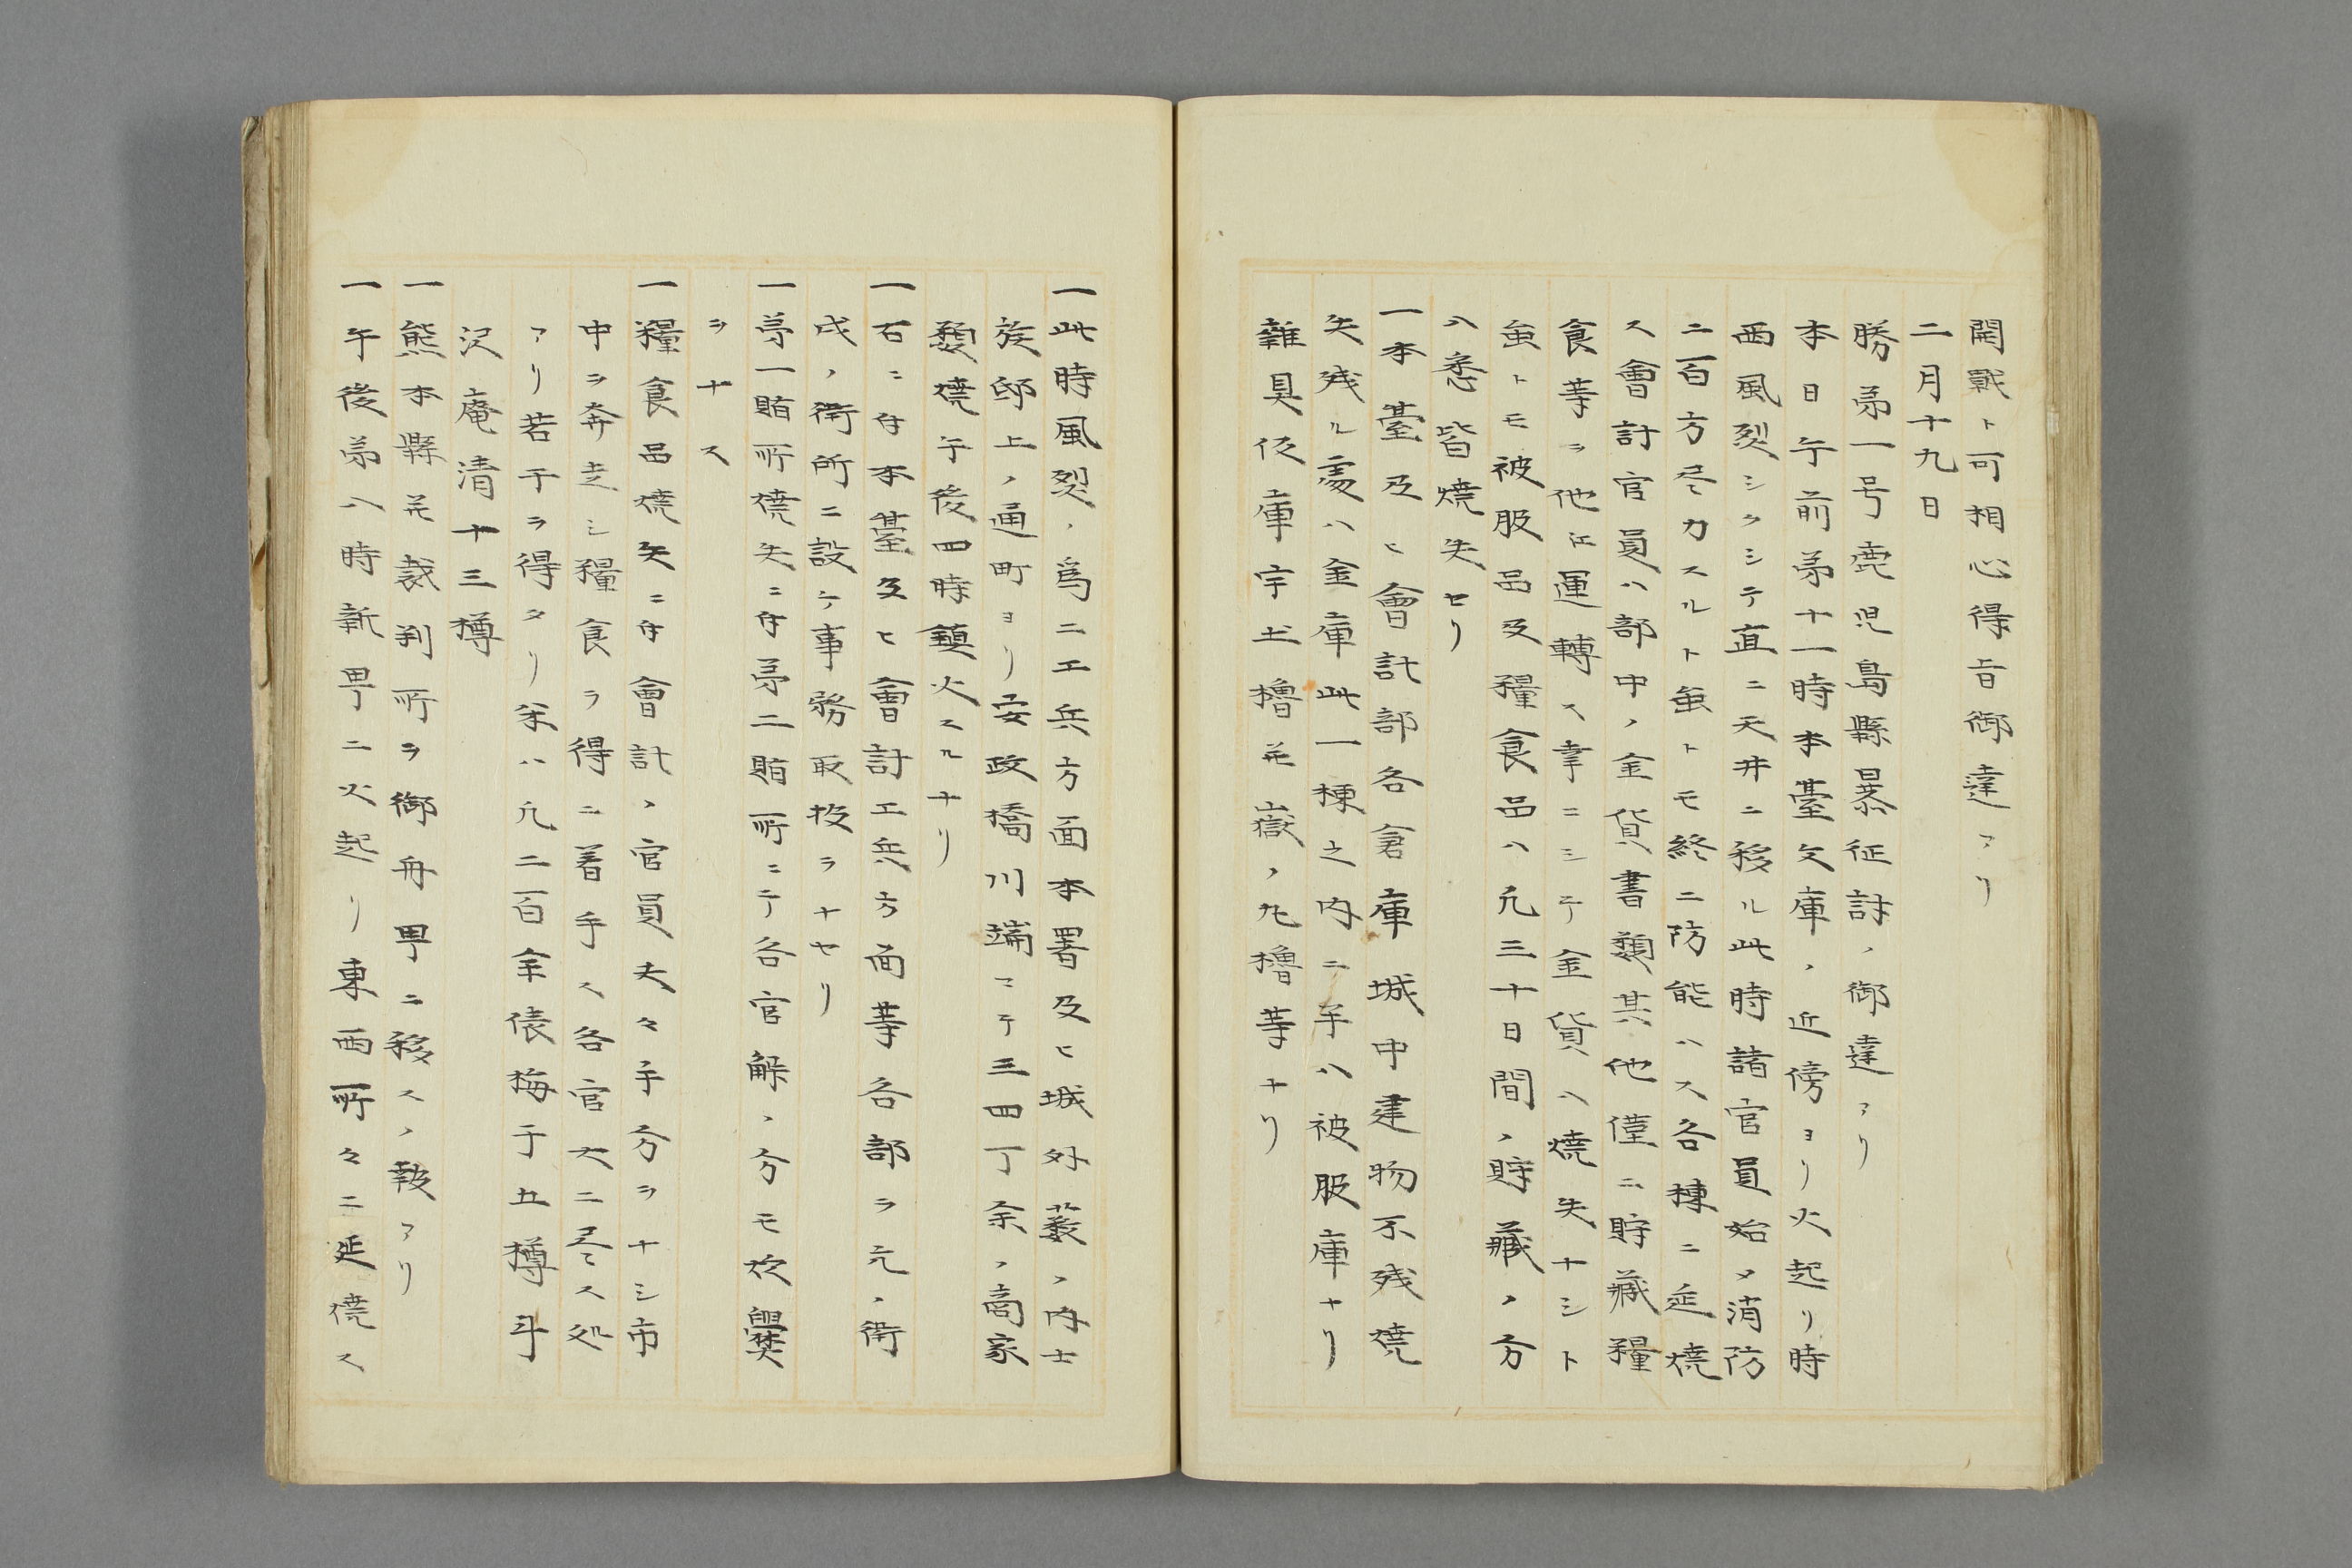 開戰ト可相心得旨御達アリ
二月十九日
勝第一号鹿児島縣暴征討ノ御達アリ
本日午前第十一時本臺文庫ノ近傍ヨリ火起リ時
西風烈シクシテ直ニ天井ニ移ル此時諸官員始メ消防
ニ百方尽力スルト虽トモ終ニ防能ハス各棟ニ延燒
ス會計官員ハ部中ノ金貨書類其他僅ニ貯藏糧
食等ヲ他江運轉ス幸ニシテ金貨ハ燒失ナシト
虽トモ被服品及糧食品ハ凡三十日間ノ貯藏ノ分
ハ悉皆燒失セリ
一本臺及ヒ會計部各倉庫城中建物不残燒
失残ル處ハ金庫此一棟之内ニ手ハ被服庫ナリ
雜具仮庫宇土櫓并嶽ノ丸櫓等ナリ
一此時風烈ノ為ニ工兵方面本署及ヒ城外薮ノ内士
族邸上ノ通町ヨリ安政橋川端マテ三四丁余ノ商家
類燒午後四時鎮火スルナリ
一右ニ付本臺及ヒ會計工兵方面等各部ヲ元ノ衛
戍ノ衛所ニ設ケ事務取扱ヲナセリ
一第一賄所燒失ニ付第二賄所ニテ各官解ノ分モ炊爨
ヲナス
一糧食品燒失ニ付會計ノ官員夫々手分ヲナシ市
中ヲ奔走シ糧食ヲ得ニ着手ス各官大ニ尽ス処
アリ若干ヲ得タリ米ハ凡二百余俵梅干五樽斗
沢庵漬十三樽
一熊本縣并裁判所ヲ御舟畢ニ移スノ報アリ
一午後第八時新畢ニ火起リ東西所々ニ延燒ス